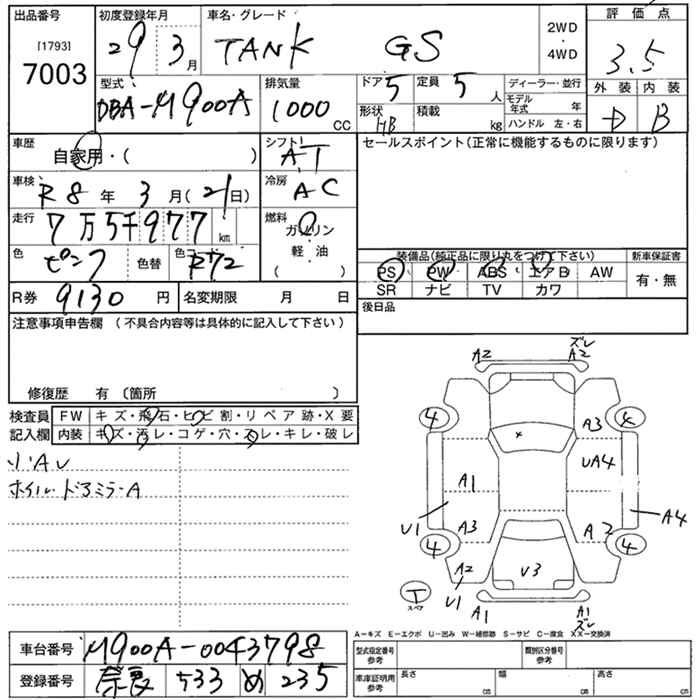 出品番号 初度登録年月 車名・グレード 評価点
[1793]
7003 29年 3月 TANK GS 2WD・4WD 3.5
型式 排気量 ドア 5 定員 5人 ディーラー・並行 外装 内装
DBA-M900A 1000 CC 形状 HB 積載 kg モデル年式 年 D B
ハンドル 左・右
車歴 自家用・( ) シフト AT セールスポイント(正常に機能するものに限ります)
車検 R8年 3月(21日) 冷房 AC
走行 7万5千977km 燃料 ガソリン
軽・油
( )
色 ピンク 色替 色コード R72 装備品(純正品に限り丸をつけて下さい) 新車保証書
PS PW ABS エアB AW 有・無
SR ナビ TV カワ
R券 9130円 名変期限 月 日 後日品
注意事項申告欄 (不具合内容等は具体的に記入して下さい)
修復歴 有 〔箇所 〕
検査員 FW キズ・飛石・ヒビ割・リペア跡・X要
記入欄 内装 キズ・汚レ・コゲ・穴・スレ・キレ・破レ
小AU
ホイル・ドアミラーA
ズレ
A2 A2
4 4
A3
×
UA4
A1
A4
U1 A3 A2
4 4
A2 U3
U1
T
スペア
A1 A1
ズレ
A-キズ E-エクボ U-凹み W-補修跡 S-サビ C-腐食 XX-交換済
車台番号 M900A-0043798 型式指定番号 参考 類別区分番号 参考
登録番号 奈良 533 め 235 車庫証明用 参考 長さ cm 幅 cm 高さ cm